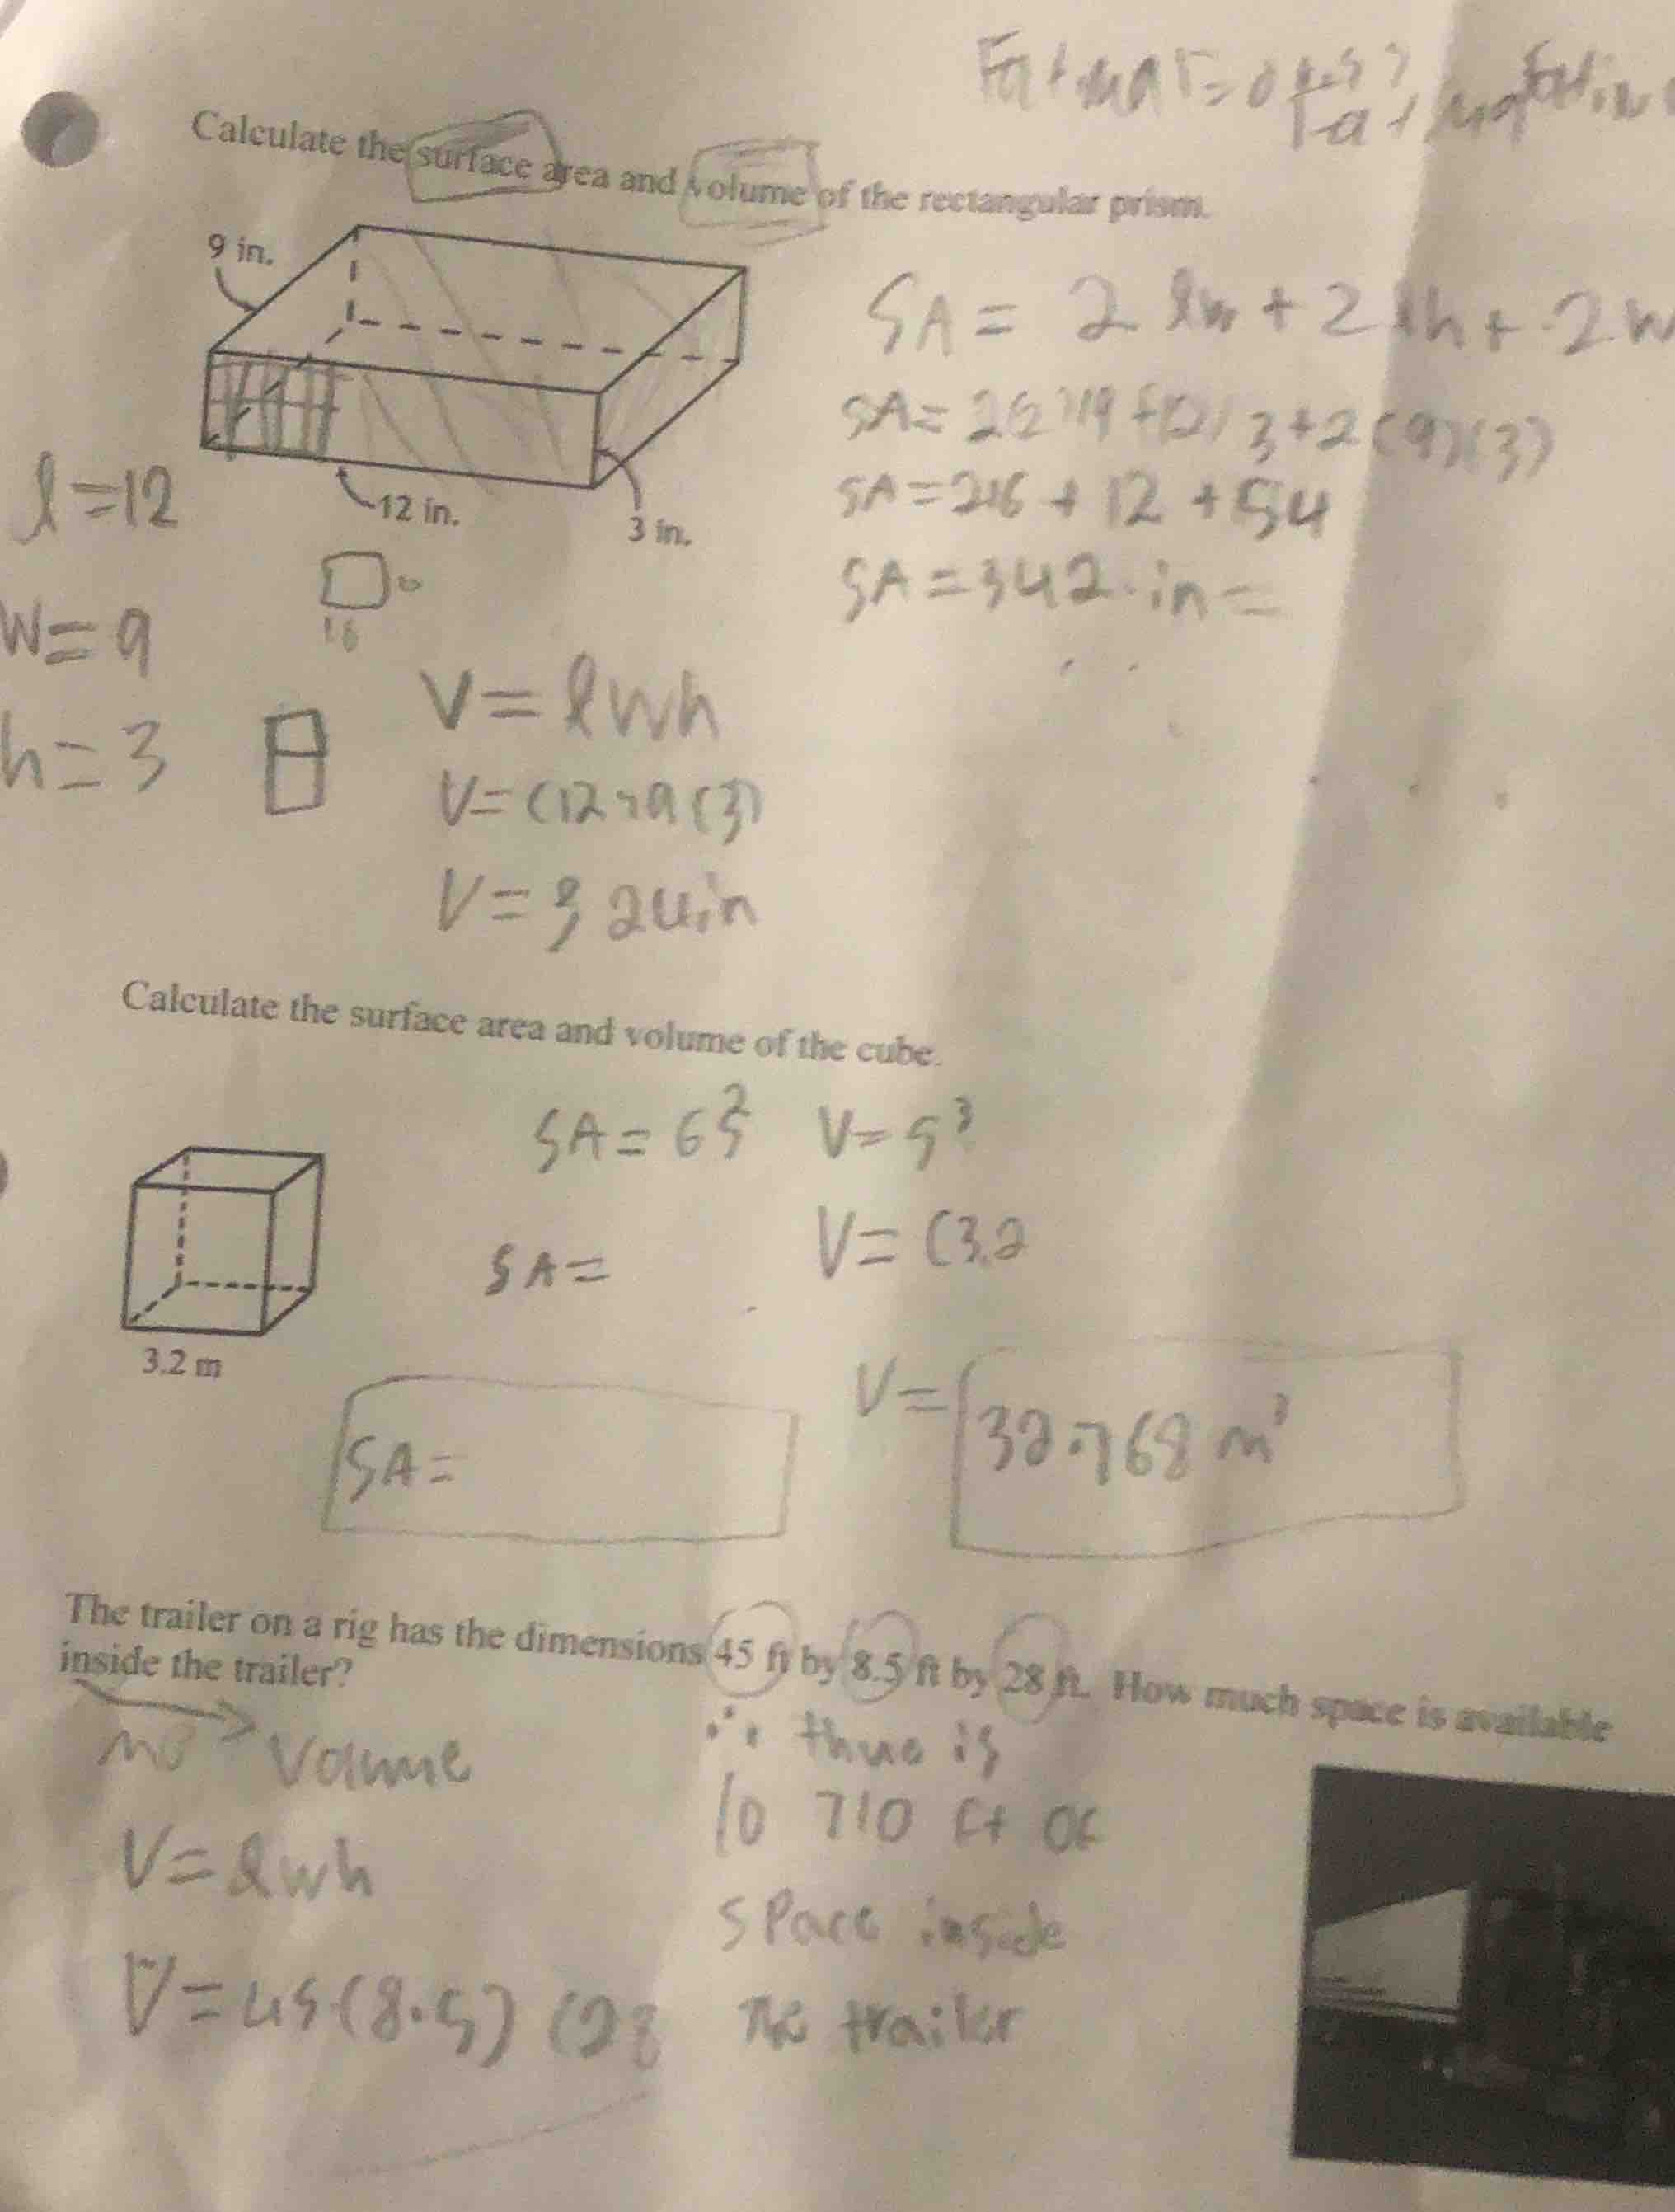 Calculate the surface area and volume of the rectangular prism.
9 in.
12 in.
3 in.
l=12
w=9
h=3
SA= 2lw+2lh+2w
3+2(9)(3)
SA=216+12+54
SA=342 in
V=lwh
V=(12 9(3)
V=324in
Calculate the surface area and volume of the cube.
SA=6s² V=s³
SA= V=(3.2
3.2 m
SA=
V= 32.768 m³
The trailer on a rig has the dimensions 45 ft by 8.5 ft by 28 ft. How much space is available
inside the trailer?
Volume
V=lwh
V=45(8.5)(28
∴ there is
10 710 ft of
space inside
the trailer